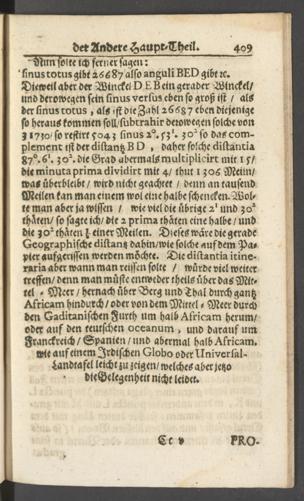 der Andere Haupt-Theil. 409
Nun solte ich ferner sagen:
sinus totus gibt 26687 also anguli BED gibt ꝛc.
Dieweil aber der Winckel DEB ein gerader Winckel/
und derowegen sein sinus versus eben so groß ist / als
der sinus totus, als ist die Zahl 26687 eben diejenige
so heraus kommen soll/subtrahir derowegen solche von
31730/ so restirt 5043 sinus 2⁰. 53¹. 30² so das com-
plement ist der distantz BD, daher solche distantia
87⁰. 6¹. 30². die Grad abermals multiplicirt mit 15/
die minuta prima dividirt mit 4/ thut 1306 Meiln/
was überbleibt / wird nicht geachtet / denn an tausend
Meilen kan man einem wol eine halbe schencken. Wol-
te man aber ja wissen / wie viel die übrige 2¹ und 30²
thäten/ so sagte ich/ die 2 prima thäten eine halbe / und
die 30² thäten ⅛ einer Meilen. Dieses wäre die gerade
Geographische distantz dahin/wie solche auf dem Pa-
pier aufgerissen werden möchte. Die distantia itine-
raria aber wann man reissen solte / würde viel weiter
treffen/ denn man müste entweder theils über das Mit-
tel - Meer / hernach über Berg und Thal durch gantz
Africam hindurch / oder von dem Mittel - Meer durch
den Gaditanischen Furth um halb Africam herum/
oder auf den teutschen oceanum, und darauf um
Franckreich / Spanien / und abermal halb Africam.
wie auf einem Irdischen Globo oder Universal-
Landtafel leicht zu zeigen/ welches aber jetzo
die Gelegenheit nicht leidet.
Cc v PRO-